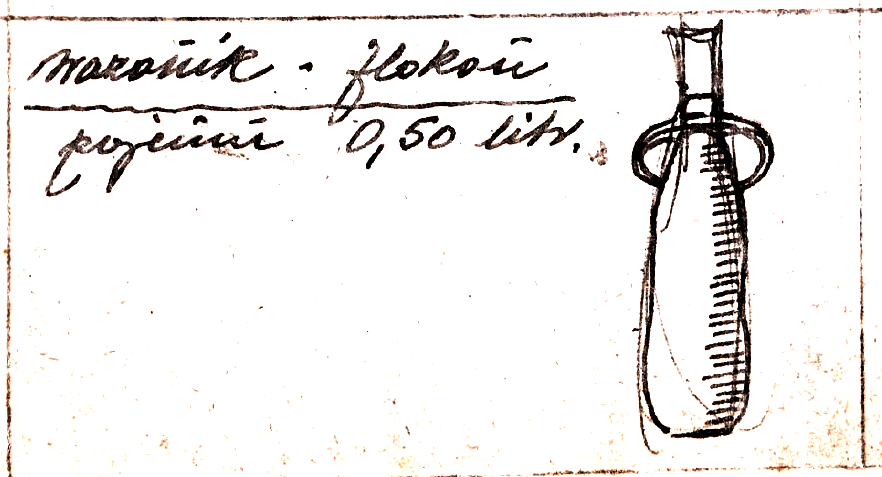 wazonik - flakon
pojemn 0,50 litr.